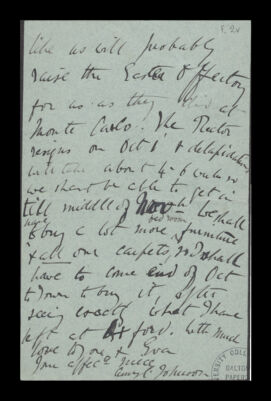 F. 2v
like as will probably
raise the Easter Offertory
for us as they did at
Monte Carlo. The Rector
resigns on Oct 1st & delapidations
will take about 4-6 weeks so
we shan't be able to get in
till middle of Nov We shall
have bed room
to buy a lot more furniture
& all our carpets, so I shall
have to come end of Oct
to Town to buy it, after
seeing exactly what I have
left at ford. With much
love to you & Eva
Your affecte niece
Johnson
UNIVERSITY COLL
GALTON
PAPERS